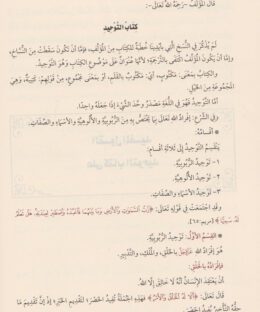 قَالَ المُؤَلِّفُ -رَحِمَهُ اللهُ تَعَالَى-:
كِتَابُ التَّوْحِيدِ
لَمْ يُذْكَرْ فِي النُّسَخِ الَّتِي بِأَيْدِينَا خُطْبَةٌ لِلْكِتَابِ مِنَ المُؤَلِّفِ، فَإِمَّا أَنْ تَكُونَ سَقَطَتْ مِنَ النُّسَّاخِ،
وَإِمَّا أَنْ يَكُونَ المُؤَلِّفُ اكْتَفَى بِالتَّرْجَمَةِ؛ لِأَنَّهَا عُنْوَانٌ عَلَى مَوْضُوعِ الكِتَابِ وَهُوَ التَّوْحِيدُ.
وَالكِتَابُ بِمَعْنَى: مَكْتُوبٍ، أَيْ: مَكْتُوبٌ بِالقَلَمِ، أَوْ بِمَعْنَى مَجْمُوعٍ، مِنْ قَوْلِهِمْ: كَتِيبَةٌ، وَهِيَ
المَجْمُوعَةُ مِنَ الخَيْلِ.
أَمَّا التَّوْحِيدُ فَهُوَ فِي اللُّغَةِ مَصْدَرُ وَحَّدَ الشَّيْءَ إِذَا جَعَلَهُ وَاحِدًا.
وَفِي الشَّرْعِ: إِفْرَادُ اللهِ تَعَالَى بِمَا يَخْتَصُّ بِهِ مِنَ الرُّبُوبِيَّةِ وَالأُلُوهِيَّةِ وَالأَسْمَاءِ وَالصِّفَاتِ.
* أَقْسَامُهُ:
يَنْقَسِمُ التَّوْحِيدُ إِلَى ثَلَاثَةِ أَقْسَامٍ:
١- تَوْحِيدُ الرُّبُوبِيَّةِ.
٢- تَوْحِيدُ الأُلُوهِيَّةِ.
٣- تَوْحِيدُ الأَسْمَاءِ وَالصِّفَاتِ.
وَقَدِ اجْتَمَعَتْ فِي قَوْلِهِ تَعَالَى: ﴿رَبُّ السَّمَوَاتِ وَالأَرْضِ وَمَا بَيْنَهُمَا فَاعْبُدْهُ وَاصْطَبِرْ لِعِبَادَتِهِ هَلْ تَعْلَمُ
لَهُ سَمِيًّا﴾ [مريم: ٦٥].
* القِسْمُ الأَوَّلُ: تَوْحِيدُ الرُّبُوبِيَّةِ.
هُوَ إِفْرَادُ اللهِ بِالخَلْقِ، وَالمُلْكِ، وَالتَّدْبِيرِ.
فَإِفْرَادُهُ بِالخَلْقِ:
أَنْ يَعْتَقِدَ الإِنْسَانُ أَنَّهُ لَا خَالِقَ إِلَّا اللهُ.
قَالَ تَعَالَى: ﴿أَلَا لَهُ الْخَلْقُ وَالْأَمْرُ﴾ فَهَذِهِ الجُمْلَةُ تُفِيدُ الحَصْرَ؛ لِتَقْدِيمِ الخَبَرِ؛ إِذْ إِنَّ تَقْدِيمَ مَا
حَقُّهُ التَّأْخِيرُ يُفِيدُ الحَصْرَ